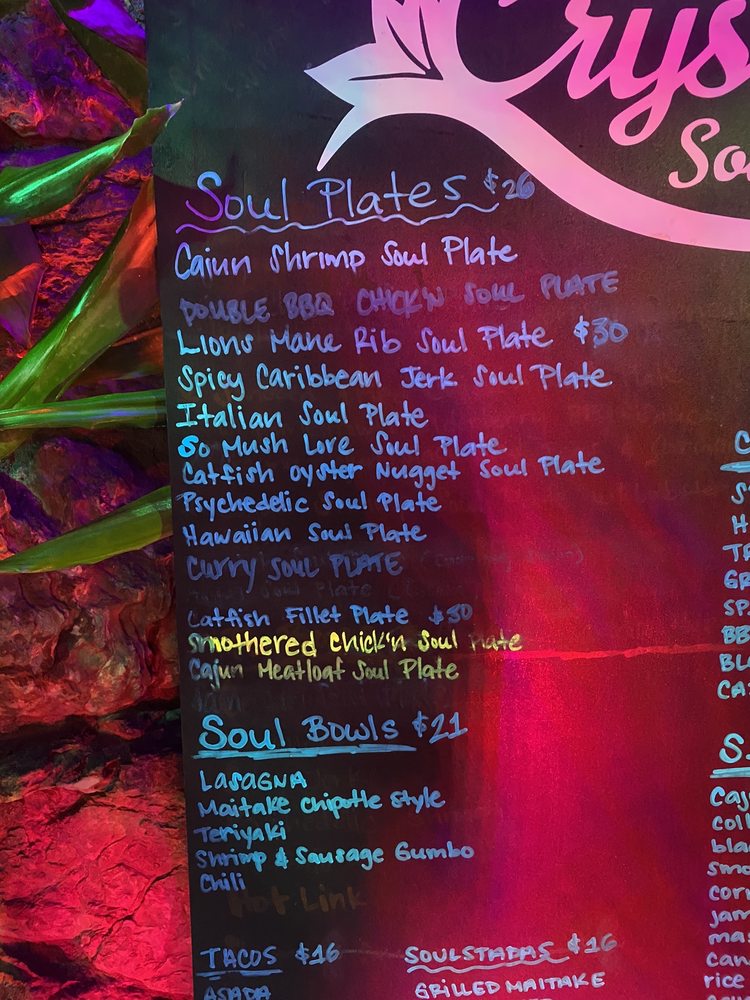 Crys
So
Soul Plates $26
Cajun Shrimp Soul Plate
DOUBLE BBQ CHICK'N SOUL PLATE
Lions Mane Rib Soul Plate $30
Spicy Caribbean Jerk Soul Plate
Italian Soul Plate
So Mush Love Soul Plate
Catfish oyster Nugget Soul Plate
Psychedelic Soul Plate
Hawaiian Soul Plate
Curry SOUL PLATE
Catfish Fillet Plate $30
Smothered Chick'n Soul Plate
Cajun Meatloaf Soul Plate
Soul Bowls $21
LASAGNA
Maitake Chipotle Style
Teriyaki
Shrimp & Sausage Gumbo
Chili
Hot Link
TACOS $16
ASADA
SOULSTADAS $16
GRILLED MAITAKE
C
S
H
TR
GR
SP
BB
BL
CA
S
Caj
coll
bla
smo
corn
jam
mas
can
rice